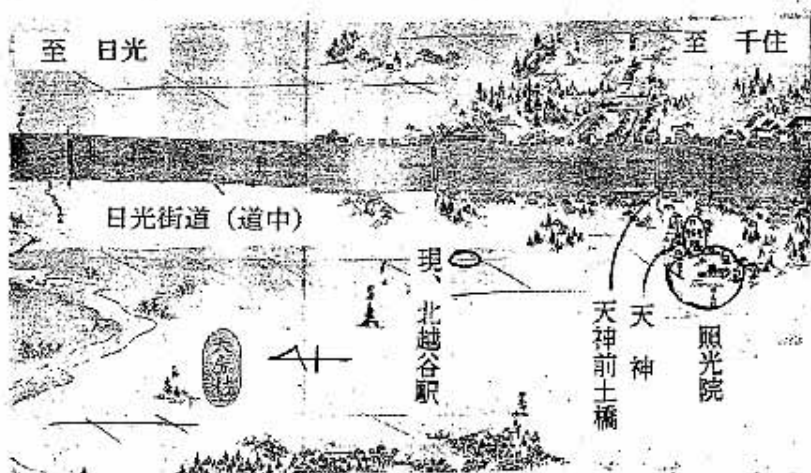 至 日光
至 千住
日光街道（道中）
現、北越谷駅
天神前土橋
天神
照光院